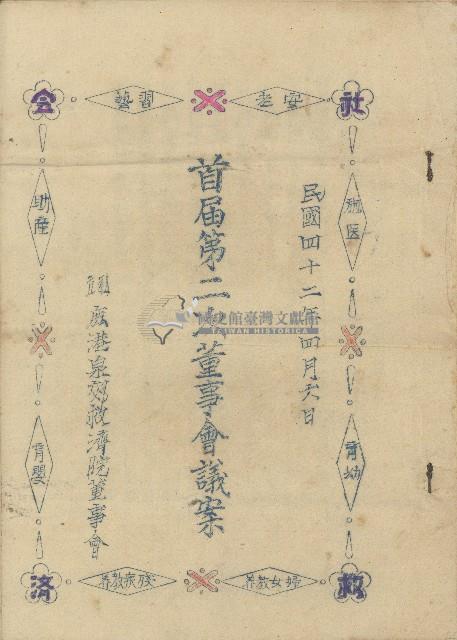 社
安老
習藝
会
施医
育幼
助産
育嬰
民國四十二年四月六日
首届第二次董事會議案
鹿港泉郊救濟院董事會
救
婦女教养
殘疾教养
済
國史館臺灣文獻館
TAIWAN HISTORICA